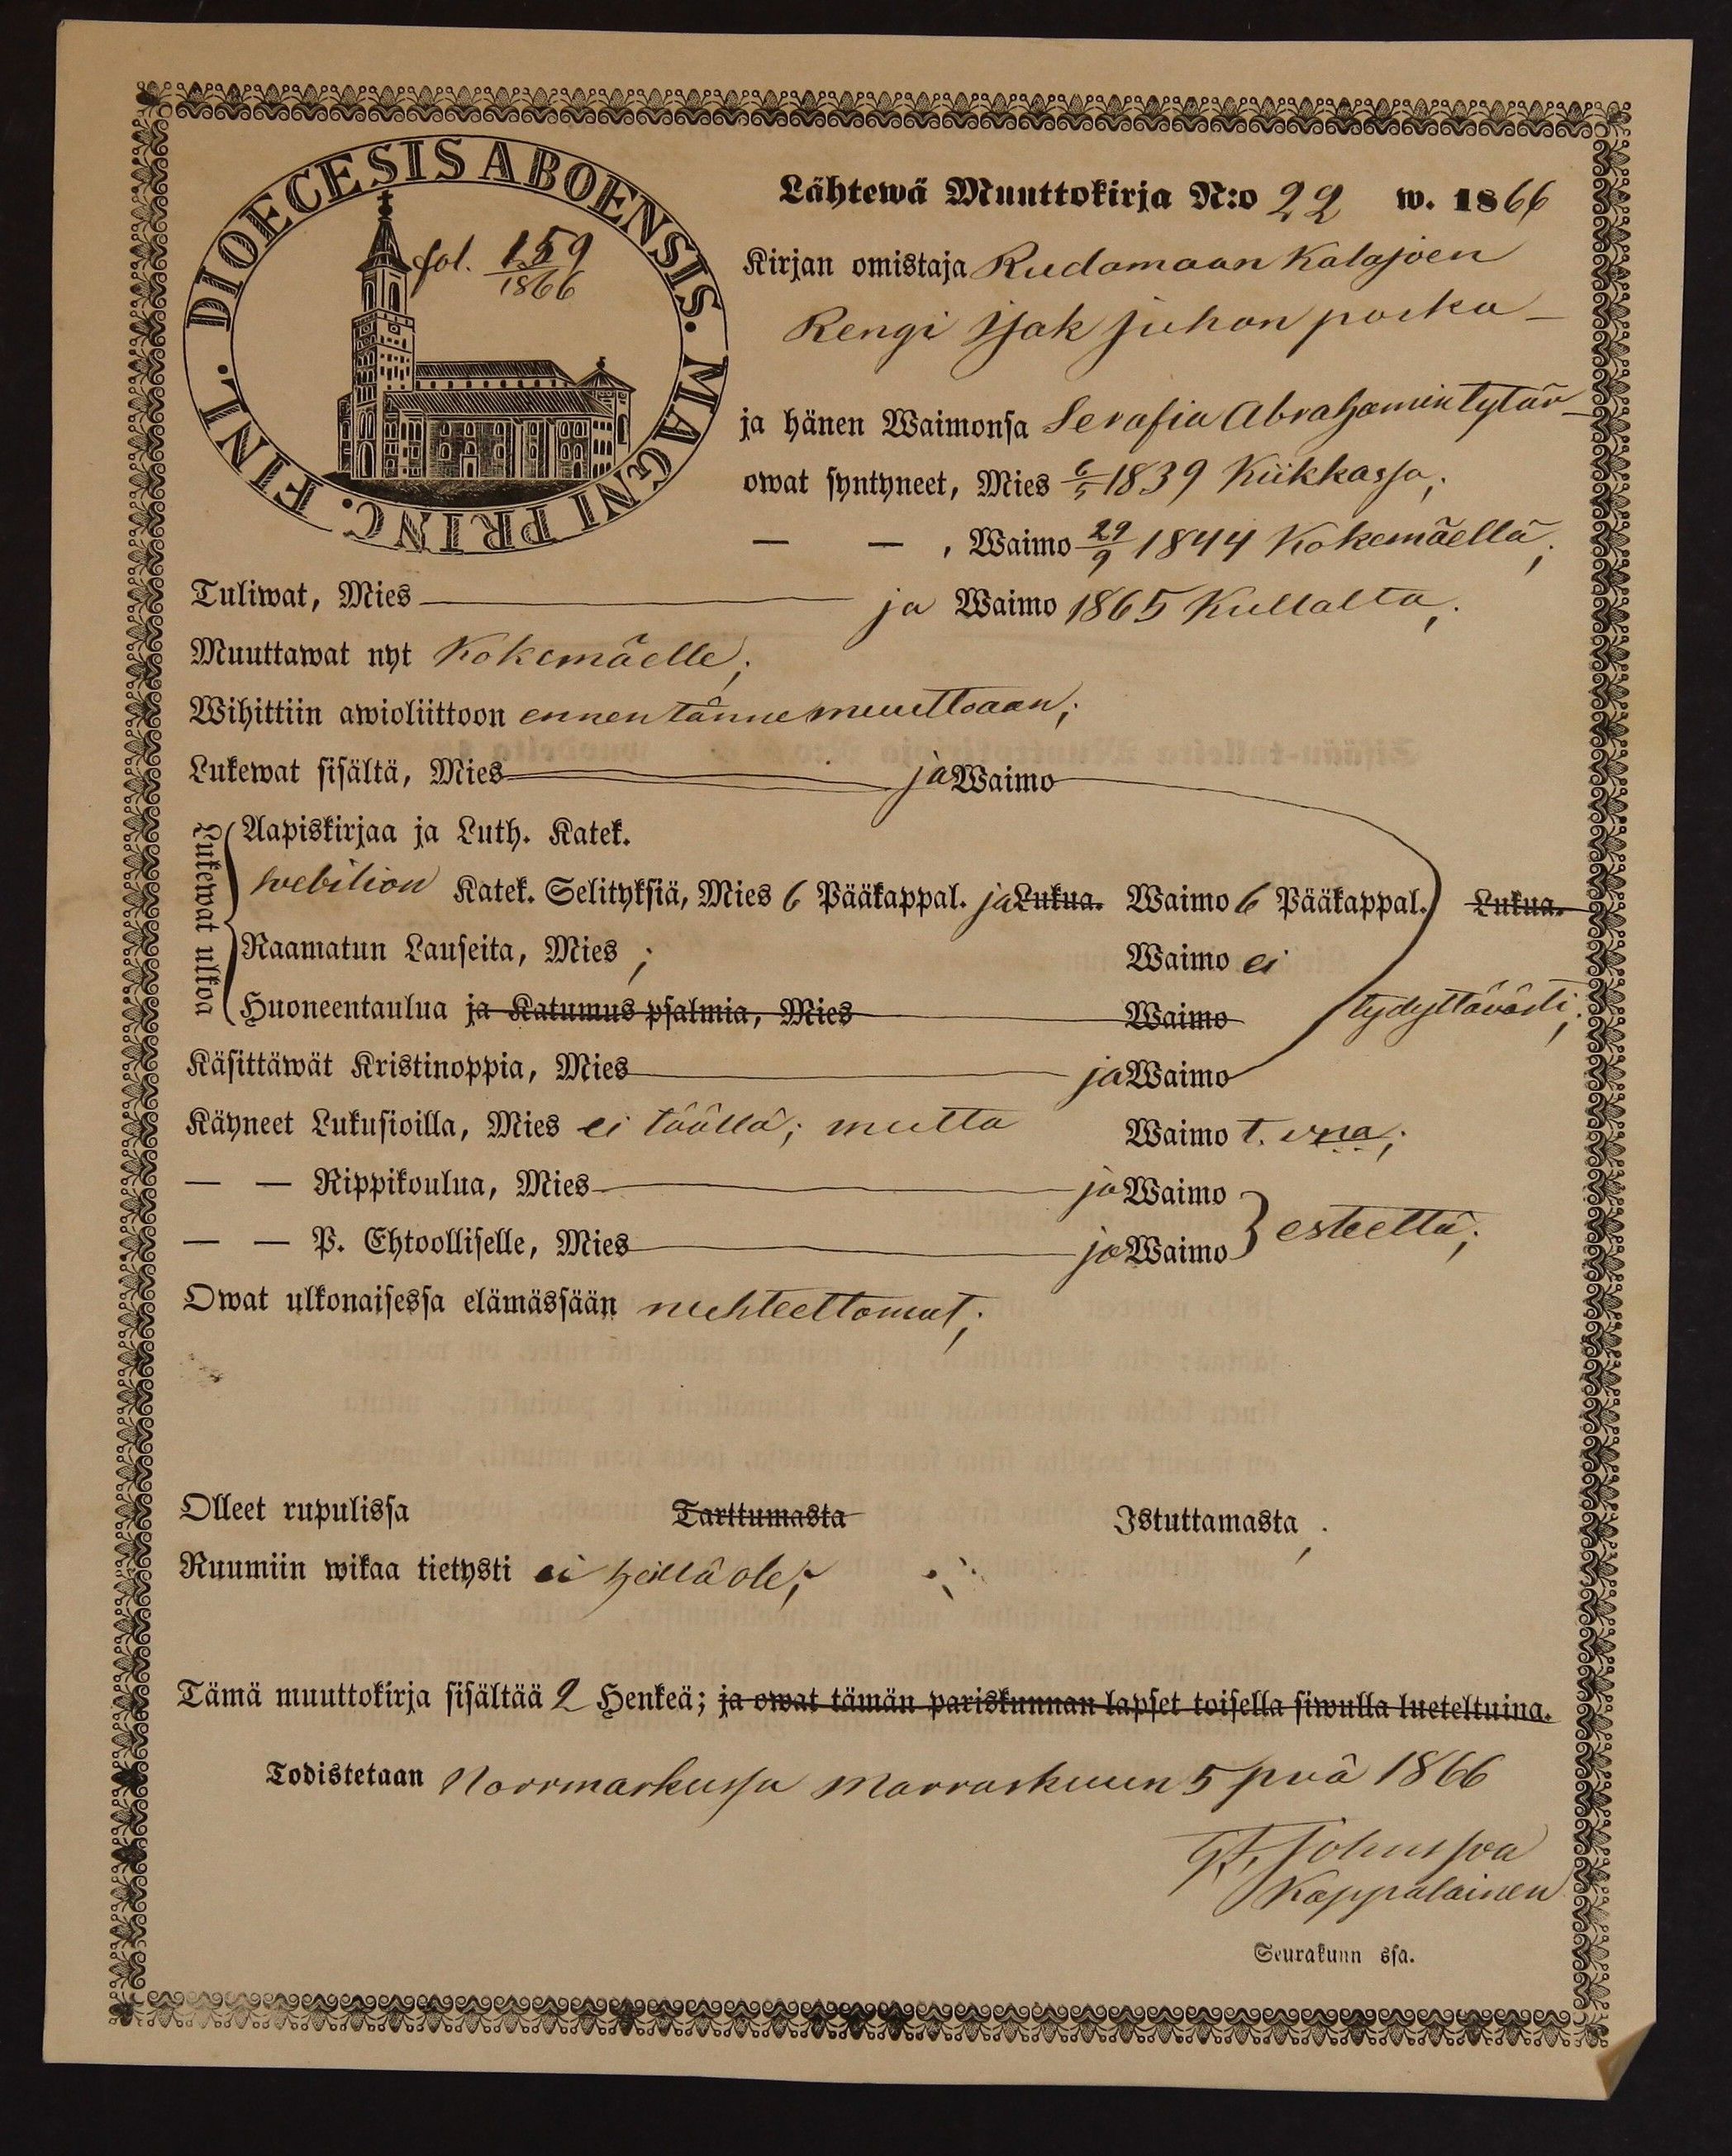 DIOECESIS ABOENSIS. MAGNI PRINC. FINL.
fol. 159
1866
Lähtewä Muuttokirja N:o 22 w. 1866
Kirjan omistaja Rudamaan Kalajoen
Rengi Isak Juhan poika
ja hänen Waimonsa Serafia Abrahamin tytär
owat syntyneet, Mies 6/5 1839 Kiikkassa;
— — , Waimo 29/9 1844 Kokemäellä;
Tuliwat, Mies ja Waimo 1865 Kullalta;
Muuttawat nyt Kokemäelle;
Wihittiin awioliittoon ennen tänne muuttoaan;
Lukewat sisältä, Mies ja Waimo
Lukewat ulkoa
Aapiskirjaa ja Luth. Katek.
Svebilion Katek. Selityksiä, Mies 6 Pääkappal. ja Lukua. Waimo 6 Pääkappal. Lukua.
Raamatun Lauseita, Mies ; Waimo ei
Huoneentaulua ja Katumus psalmia, Mies Waimo tydyttäväst i;
Käsittäwät Kristinoppia, Mies ja Waimo
Käyneet Lukusioilla, Mies ei täällä; mutta Waimo t. vna;
— — Rippikoulua, Mies ja Waimo
— — P. Ehtoolliselle, Mies ja Waimo } esteettä;
Owat ulkonaisessa elämässään nuhteettomat;
Olleet rupulissa Tarttumasta Istuttamasta ;
Ruumiin wikaa tietysti ei heillä ole;
Tämä muuttokirja sisältää 2 Henkeä; ja owat tämän pariskunnan lapset toisella siwulla lueteltuina.
Todistetaan Norrmarkussa Marraskuun 5 pvä 1866
Johnsson
Kappalainen
Seurakunn ssa.